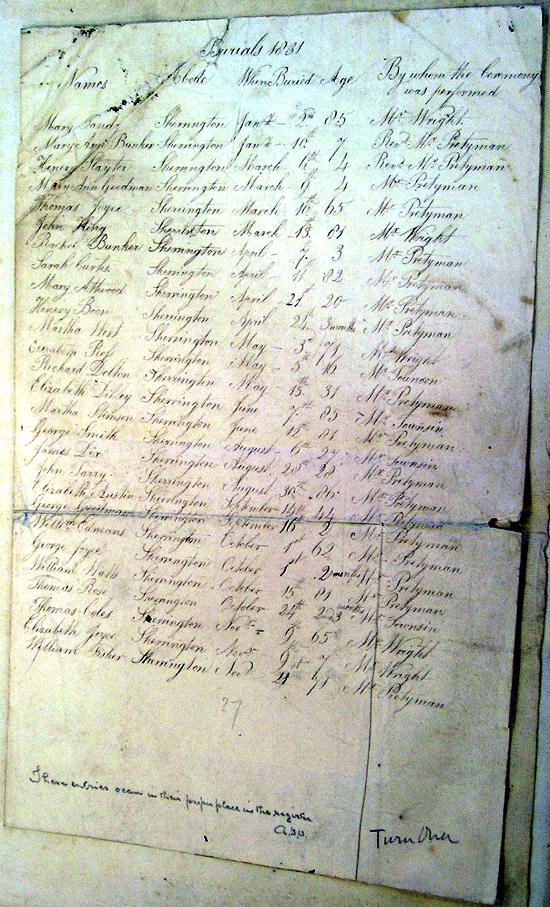 Burials 1831
Names Abode When Buried Age By whom the Ceremony
was performed
Mary Sherrington Jany 2nd 85 Mr Wright
Mary Ann Bunker Sherrington Jany 10th 7 Revd Mr Pretyman
Henery Slayter Sherrington March 6th 4 Revd Mr Pretyman
Mary Ann Goodman Sherrington March 9th 4 Mr Pretyman
Thomas Joyce Sherrington March 10th 65 Mr Pretyman
John King Sherrington March 13 81 Mr Wright
Rachel Bunker Sherrington April 7 3 Mr Pretyman
Sarah Sherrington April 11 82 Mr Pretyman
Mary Attwood Sherrington April 21st 20 Mr Pretyman
Henery Boon Sherrington April 24 3 months Mr Pretyman
Martha West Sherrington May 3rd Mr Wright
Elizabeth Sherrington May 5th 16 Mr Tounson
Richard Sherrington May 15 31 Mr Pretyman
Elizabeth Dilley Sherrington June 7th 85 Mr Tounsin
Martha Stimson Sherrington June 15 81 Mr Pretyman
George Smith Sherrington August 6th Mr Tounsin
James Dix Sherrington August 20th Mr Pretyman
John Sherrington August 30th Mr Pretyman
Elizabeth Austin Sherrington September 14th 44 Mr Pretyman
George Goodman Sherrington September 16th 2 Mr Pretyman
Willm Edmeans Sherrington October 1st 62 Mr Pretyman
George Joyce Sherrington October 1st 2 months Mr Pretyman
William Watts Sherrington October 15th 81 Mr Tounsin
Thomas Rose Sherrington October 24th months Mr Wright
Thomas Coles Sherrington Novr 9th 65 Mr Wright
Elizabeth Joyce Sherrington Novr 7 Mr
William Fisher Sherrington Nov 21 Mr Pretyman
27
These entries occur in their proper place in the register
Turn Over